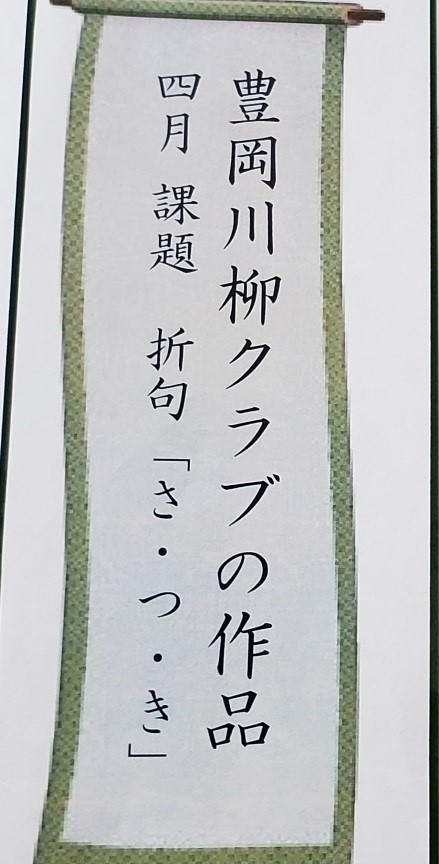 豊岡川柳クラブの作品
四月 課題 折句「さ・つ・き」